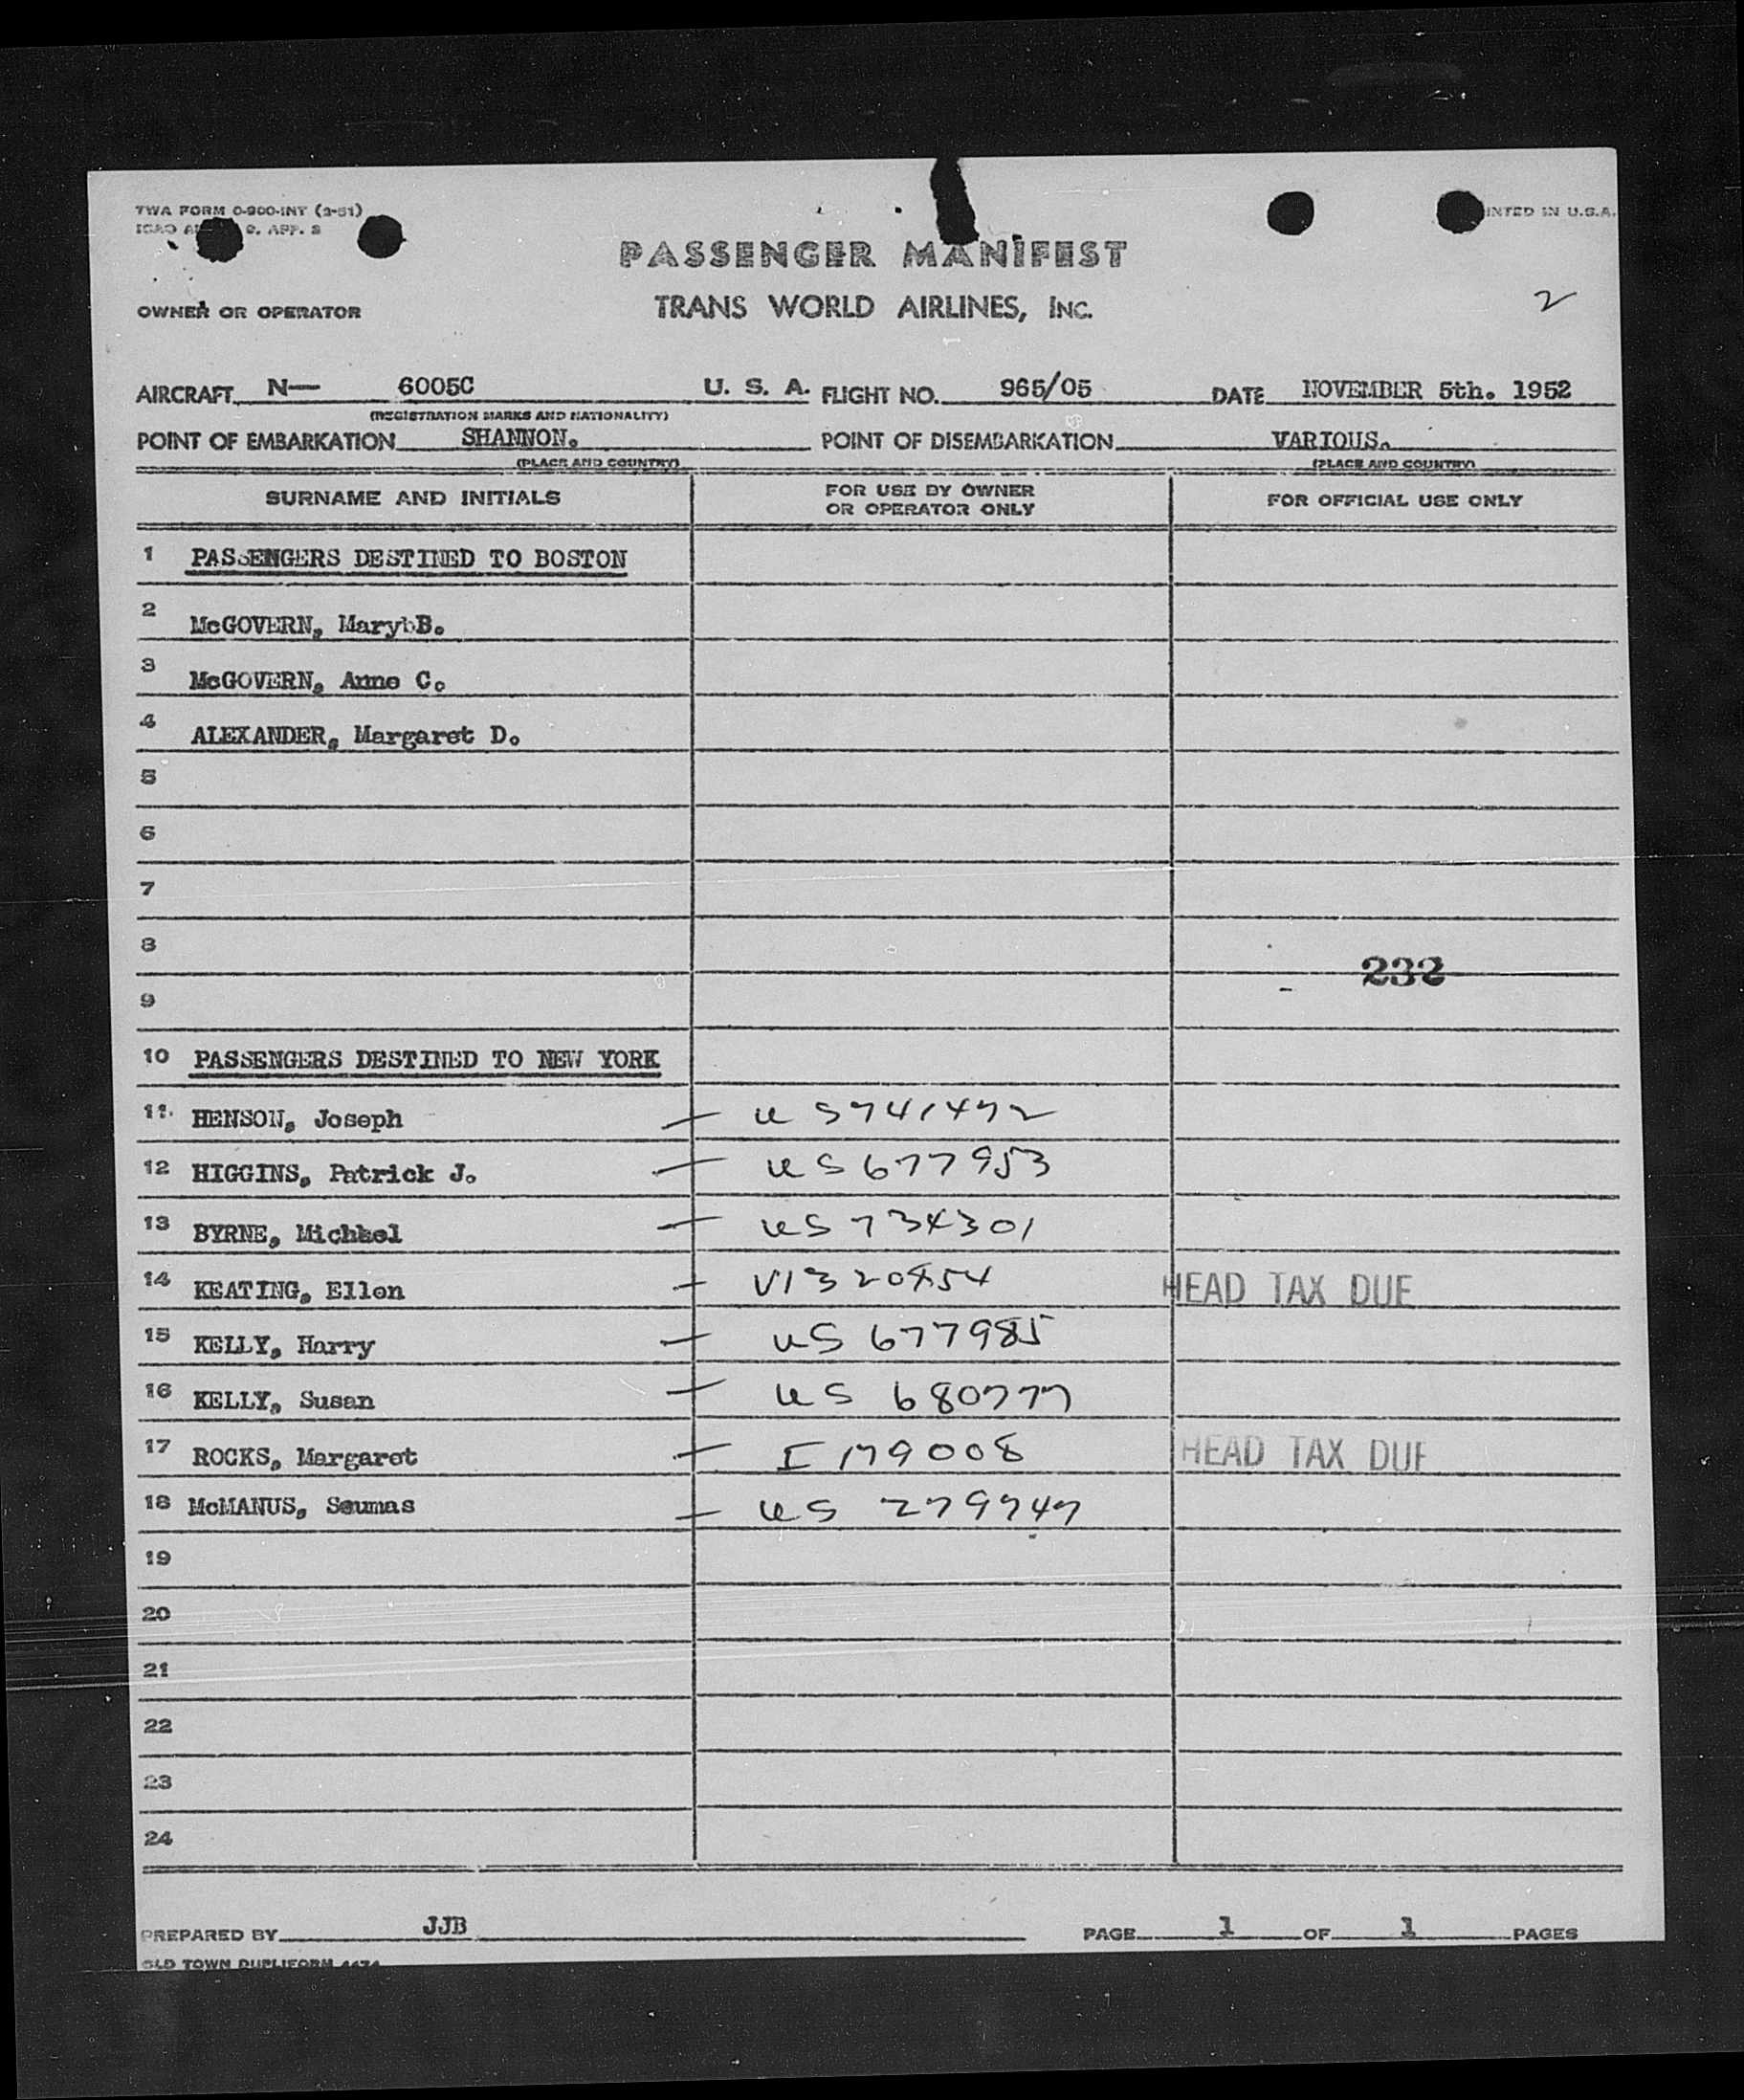 TWA FORM 0-900-INT (2-51)
ICAO 9, APP. 2
INTED IN U.S.A.
PASSENGER MANIFEST
OWNER OR OPERATOR TRANS WORLD AIRLINES, INC. 2
AIRCRAFT N— 6005C U. S. A. FLIGHT NO. 965/05 DATE NOVEMBER 5th. 1952
(REGISTRATION MARKS AND NATIONALITY)
POINT OF EMBARKATION SHANNON. POINT OF DISEMBARKATION VARIOUS.
(PLACE AND COUNTRY) (PLACE AND COUNTRY)
SURNAME AND INITIALS FOR USE BY OWNER OR OPERATOR ONLY FOR OFFICIAL USE ONLY
1 PASSENGERS DESTINED TO BOSTON
2 McGOVERN, Mary B.
3 McGOVERN, Anne C.
4 ALEXANDER, Margaret D.
5
6
7
8
232
9
10 PASSENGERS DESTINED TO NEW YORK
11 HENSON, Joseph — US741472
12 HIGGINS, Patrick J. — US677953
13 BYRNE, Michael — US734301
14 KEATING, Ellen — V1320454 HEAD TAX DUE
15 KELLY, Harry — US 677985
16 KELLY, Susan — US 680777
17 ROCKS, Margaret — I179008 HEAD TAX DUE
18 McMANUS, Seumas — US 279747
19
20
21
22
23
24
PREPARED BY JJB PAGE 1 OF 1 PAGES
OLD TOWN DUPLIFORM